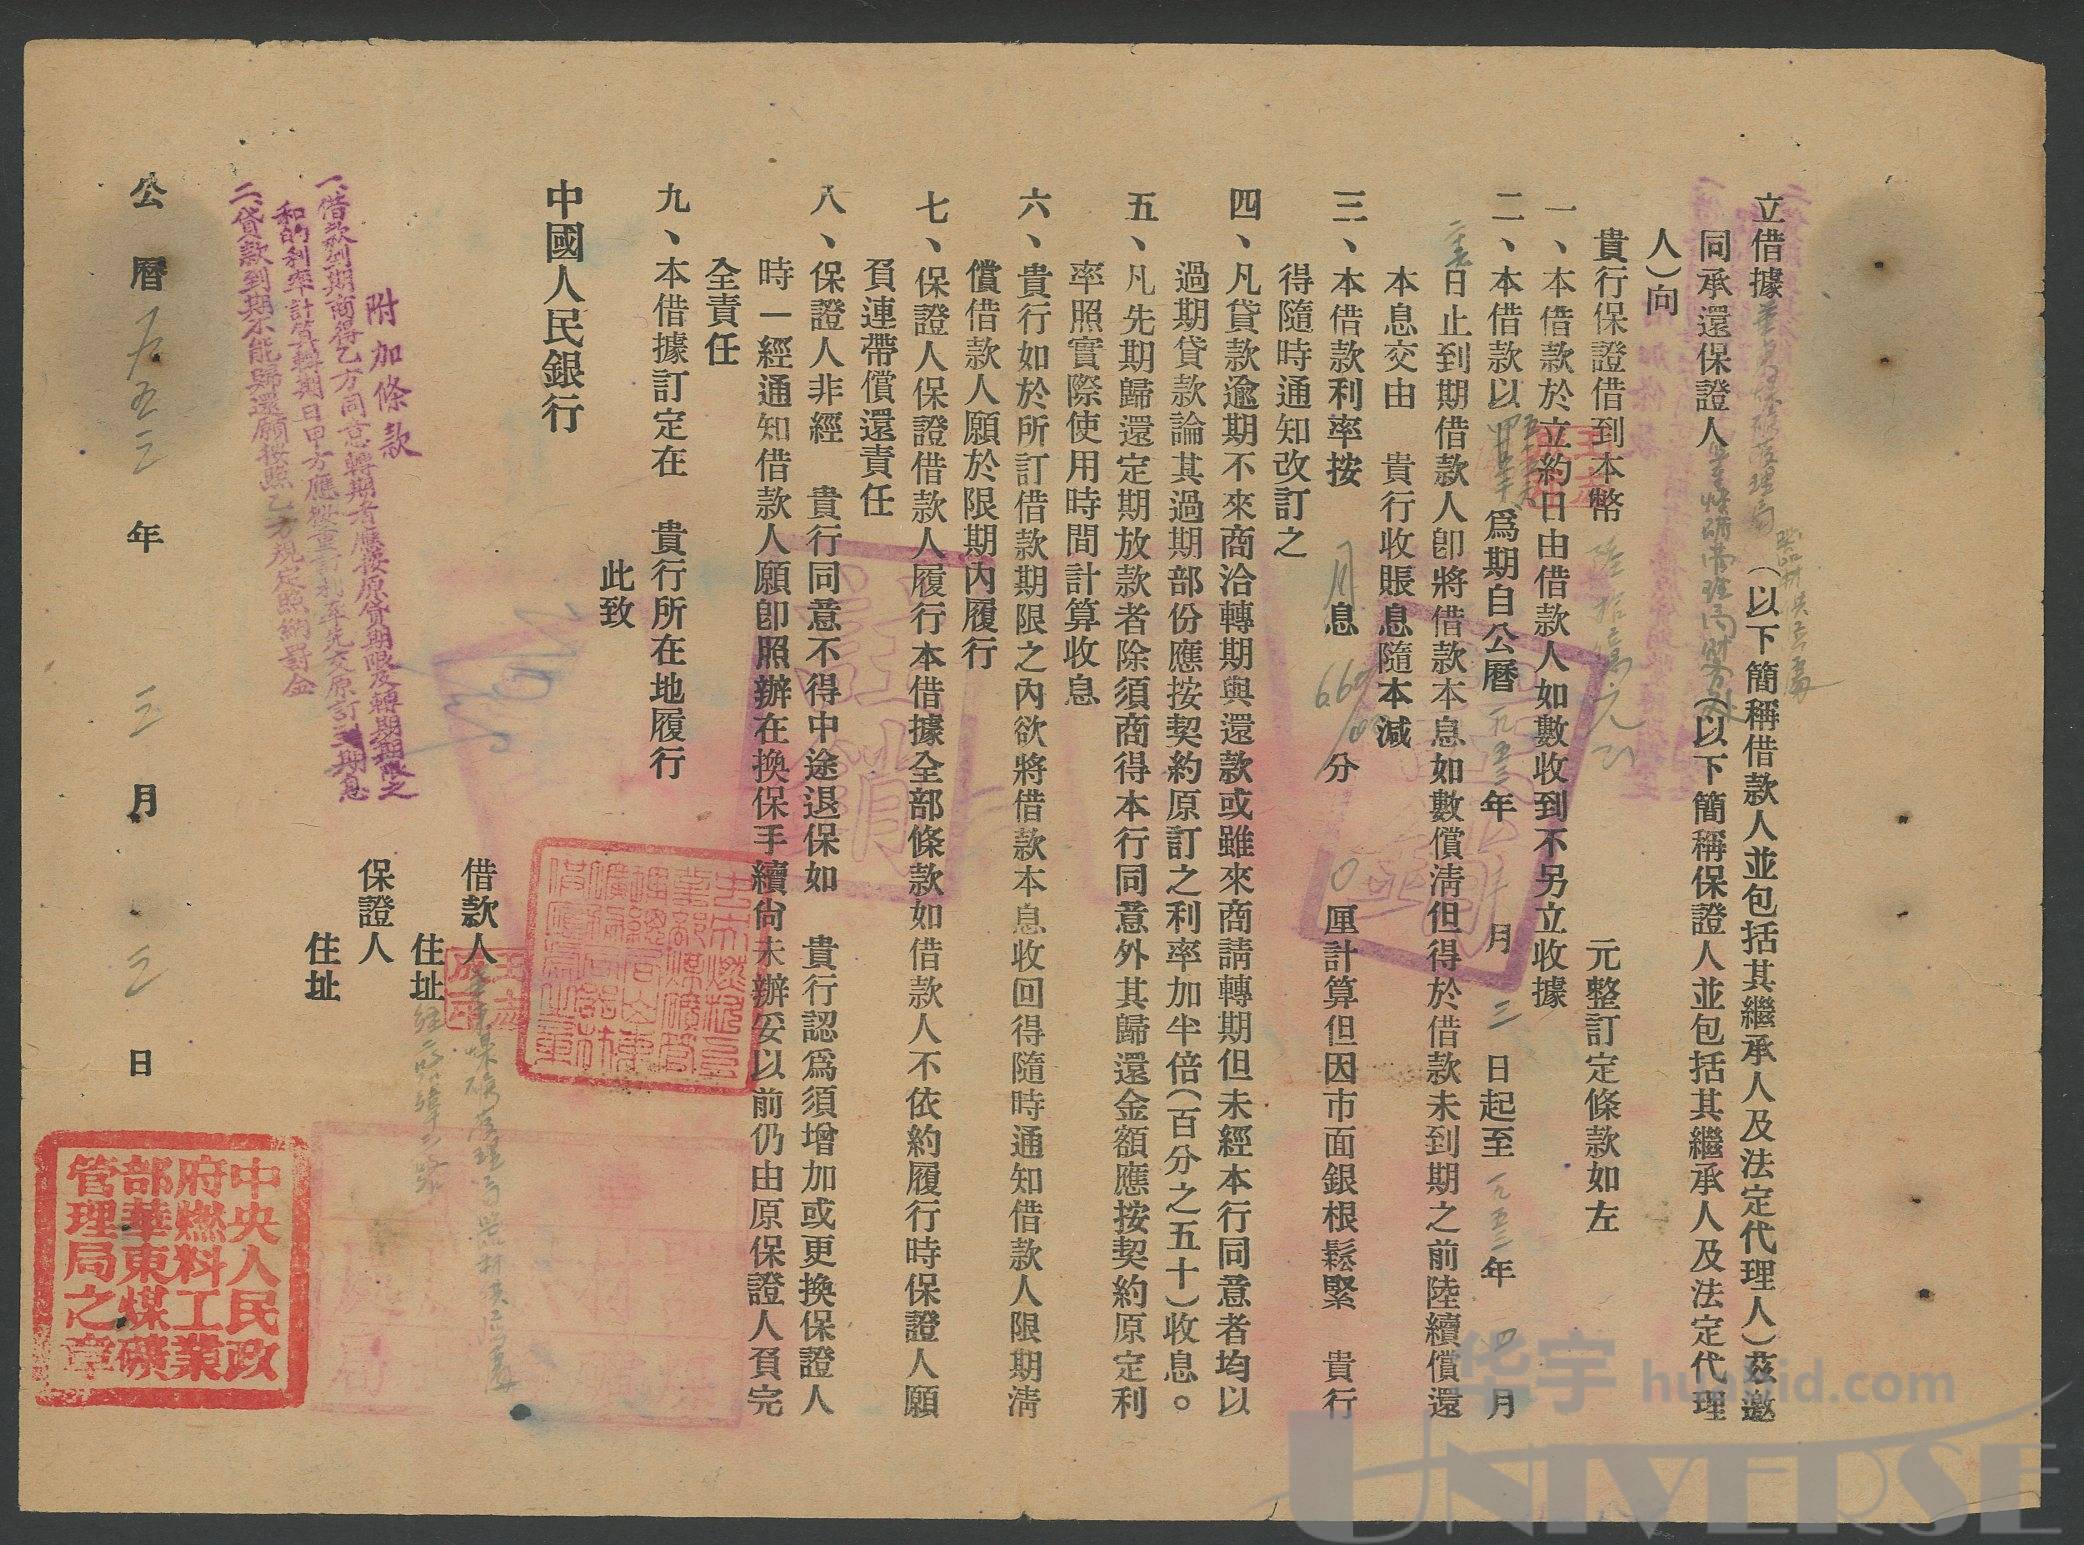 立借據華東煤礦管理局器材供應處(以下簡稱借款人並包括其繼承人及法定代理人)茲邀
同承還保證人華東煤礦管理局財務處(以下簡稱保證人並包括其繼承人及法定代理
人)向
貴行保證借到本幣陸拾億元正 元整訂定條款如左
一、本借款於立約日由借款人如數收到不另立收據
二、本借款以 爲期自公曆一九五三年 月三日起至一九五三年四月
日止到期借款人卽將借款本息如數償清但得於借款未到期之前陸續償還
本息交由 貴行收賬息隨本減
三、本借款利率按月息 分0厘計算但因市面銀根鬆緊 貴行
得隨時通知改訂之
四、凡貸款逾期不來商洽轉期與還款或雖來商請轉期但未經本行同意者均以
過期貸款論其過期部份應按契約原訂之利率加半倍(百分之五十)收息。
五、凡先期歸還定期放款者除須商得本行同意外其歸還金額應按契約原定利
率照實際使用時間計算收息
六、貴行如於所訂借款期限之內欲將借款本息收回得隨時通知借款人限期淸
償借款人願於限期內履行
七、保證人保證借款人履行本借據全部條款如借款人不依約履行時保證人願
負連帶償還責任
八、保證人非經 貴行同意不得中途退保如 貴行認爲須增加或更換保證人
時一經通知借款人願卽照辦在換保手續尙未辦妥以前仍由原保證人負完
全責任
九、本借據訂定在 貴行所在地履行
此致
中國人民銀行
借款人華東煤礦管理局器材供應處
住址經二路緯六路
保證人
住址
王志成印
附加條款
一、借款到期商得乙方同意轉期者應按原貸期限及轉期期限之
和的利率計算轉期日甲方應按重訂利率先交原訂之期息
二、貸款到期不能歸還願按照乙方規定照納罰金
公曆一九五三年三月三日
中央人民政
府燃料工業
部華東煤礦
管理局之章
註銷
註銷
华宇 huabid.com
UNIVERSE